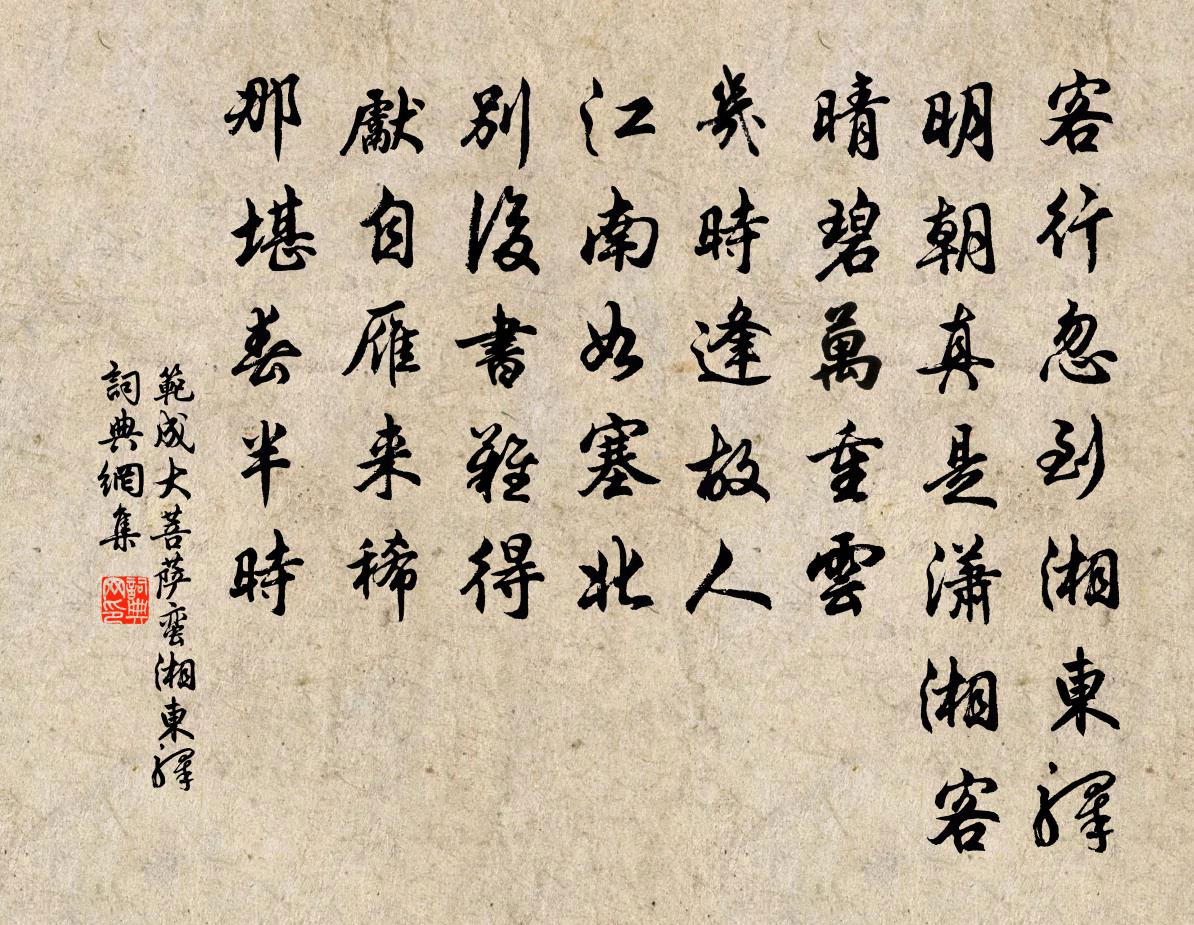 客行忽到湘東驛
明朝真是瀟湘客
晴碧萬重雲
幾時逢故人
江南如塞北
別後書難得
獻自雁来稀
那堪春半時
範成大菩薩蛮湘東驛
詞典網集
詞典网印